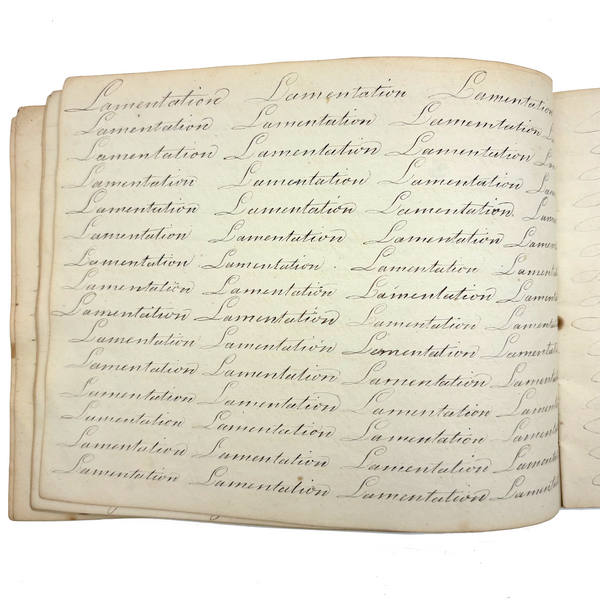 Lamentation Lamentation Lamentation
Lamentation Lamentation Lamentation
Lamentation Lamentation Lamentation
Lamentation Lamentation Lamentation
Lamentation Lamentation Lamentation
Lamentation Lamentation Lamentation Lamen
Lamentation Lamentation Lamentation Lament
Lamentation Lamentation Lamentation Lament
Lamentation Lamentation Lamentation Lamenta
Lamentation Lamentation Lamentation Lamentat
Lamentation Lamentation Lamentation Lamenta
Lamentation Lamentation Lamentation Lament
Lamentation Lamentation Lamentation Lament
Lamentation Lamentation Lamentation Lament
Lamentation Lamentation Lamentation Lament